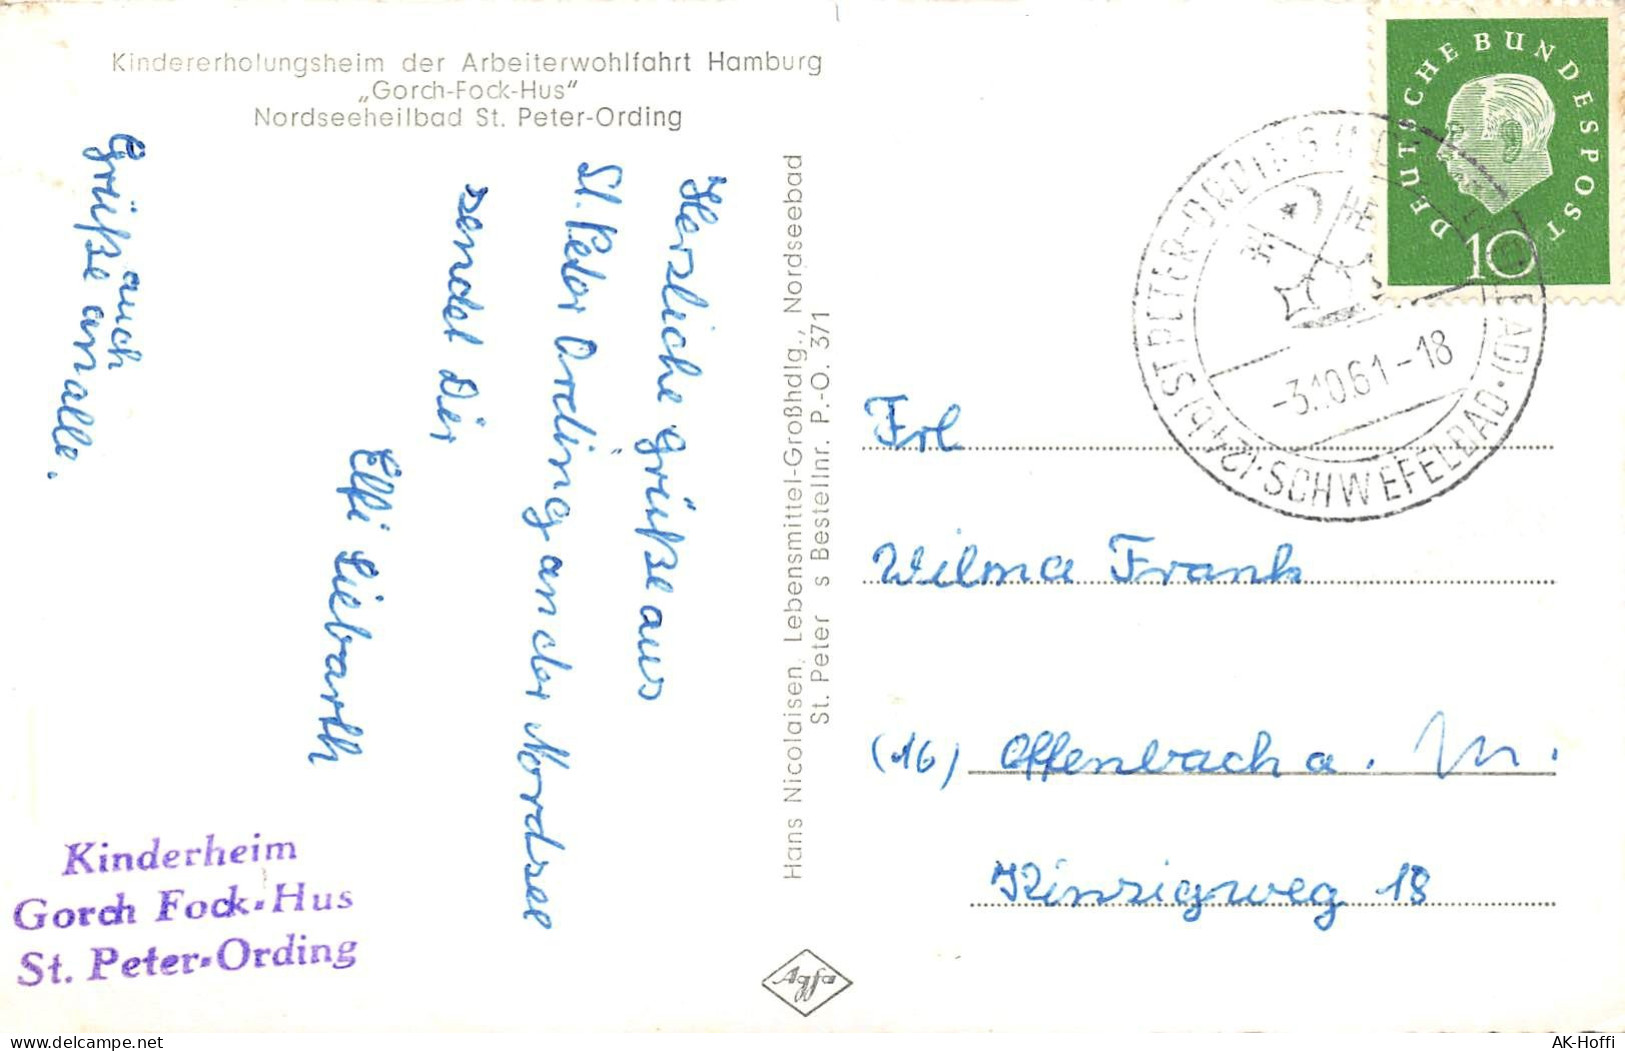 Kindererholungsheim der Arbeiterwohlfahrt Hamburg
„Gorch-Fock-Hus"
Nordseeheilbad St. Peter-Ording
Herzliche Grüße aus
St. Peter Ording an der Nordsee
sendet Dir
Elfi Liebarth
Grüße an alle.
auch
Kinderheim
Gorch Fock-Hus
St. Peter-Ording
Hans Nicolaisen, Lebensmittel-Großhdlg., Nordseebad
St. Peter s Bestellnr. P.-O. 371
Agfa
DEUTSCHE BUNDESPOST
10
(24b) ST. PETER-ORDING
-3.10.61-18
SCHWEFELBAD
Frl
Wilma Frank
(16) Offenbach a. M.
Kinzigweg 18
AK-Hoffi